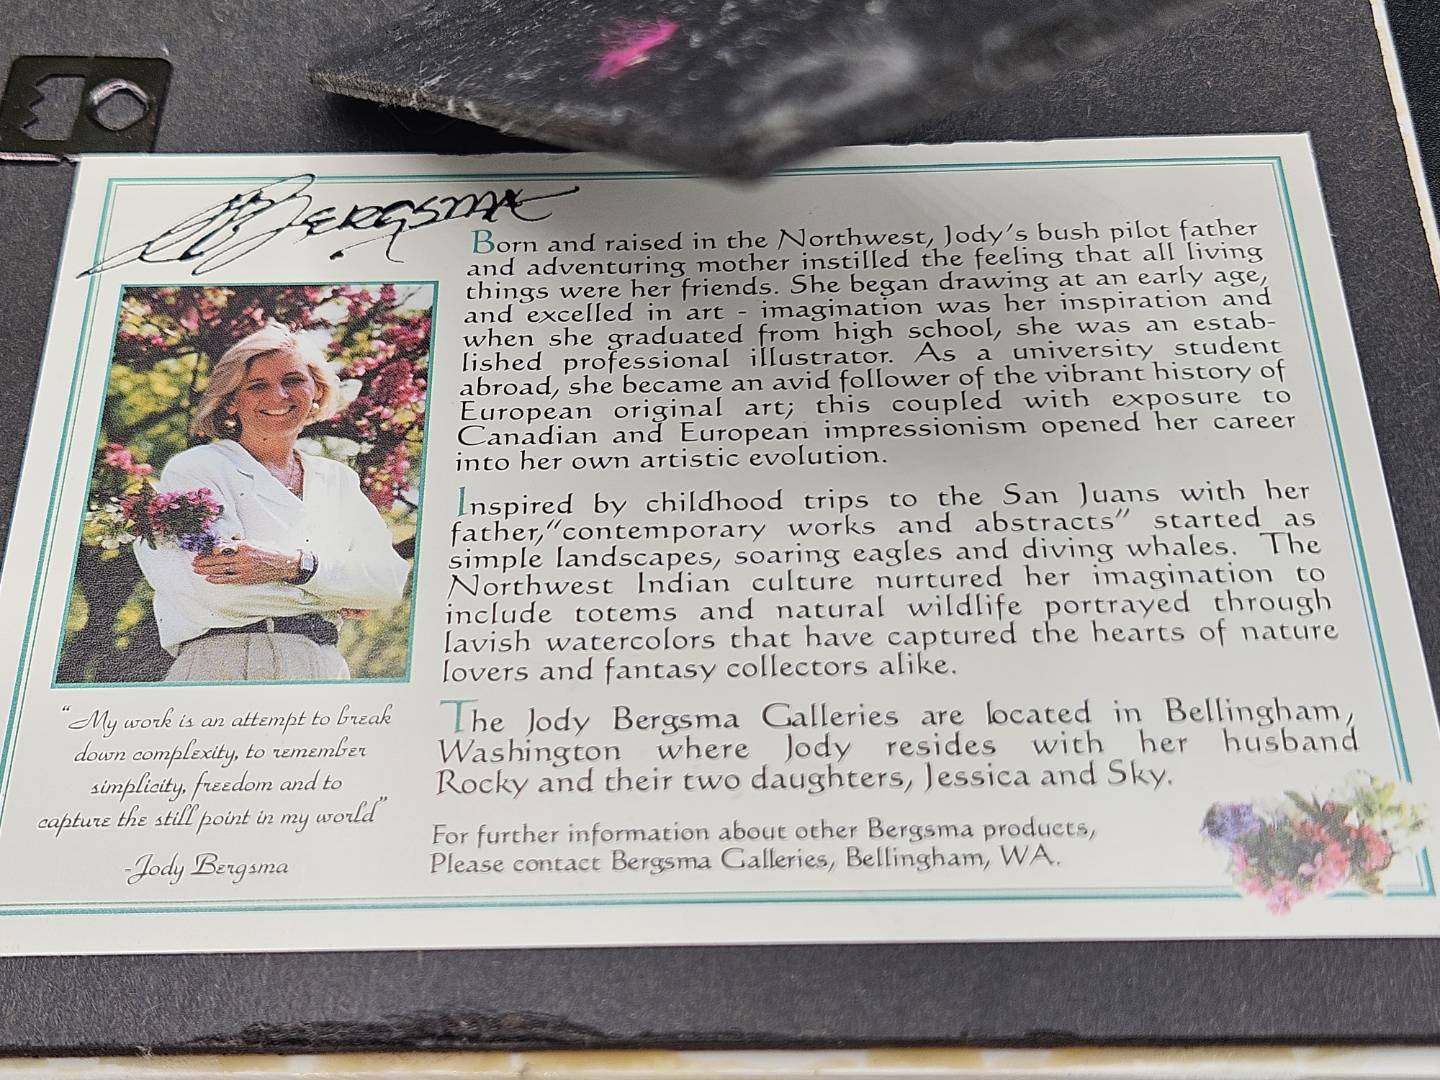 Bergsma
Born and raised in the Northwest, Jody's bush pilot father
and adventuring mother instilled the feeling that all living
things were her friends. She began drawing at an early age,
and excelled in art - imagination was her inspiration and
when she graduated from high school, she was an estab-
lished professional illustrator. As a university student
abroad, she became an avid follower of the vibrant history of
European original art; this coupled with exposure to
Canadian and European impressionism opened her career
into her own artistic evolution.
Inspired by childhood trips to the San Juans with her
father,"contemporary works and abstracts" started as
simple landscapes, soaring eagles and diving whales. The
Northwest Indian culture nurtured her imagination to
include totems and natural wildlife portrayed through
lavish watercolors that have captured the hearts of nature
lovers and fantasy collectors alike.
The Jody Bergsma Galleries are located in Bellingham,
Washington where Jody resides with her husband
Rocky and their two daughters, Jessica and Sky.
For further information about other Bergsma products,
Please contact Bergsma Galleries, Bellingham, WA.
"My work is an attempt to break
down complexity, to remember
simplicity, freedom and to
capture the still point in my world"
-Jody Bergsma